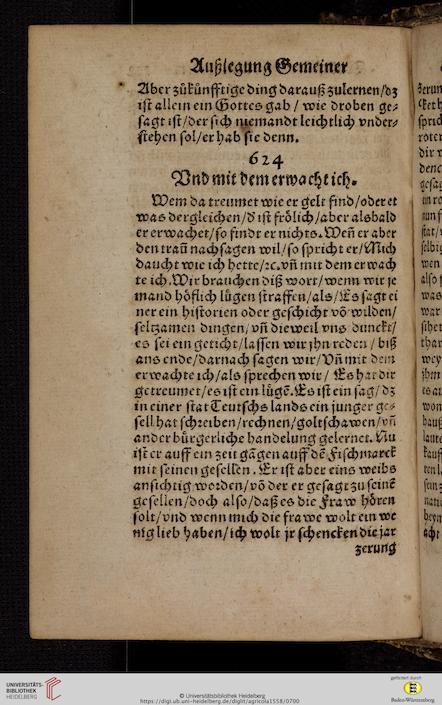 Außlegung Gemeiner
Aber zůkünfftige ding darauß zulernen/dz
ist allein ein Gottes gab / wie droben ge-
sagt ist/der sich niemandt leichtlich vnder-
stehen sol/er hab sie denn.
624
Vnd mit dem erwacht ich.
Wem da treumet wie er gelt find/oder et
was dergleichen/d ist frölich/aber alsbald
er erwachet/so findt er nichts. Weñ er aber
den trauñ nachsagen wil/so spricht er/Mich
daucht wie ich hette/ꝛc. vñ mit dem erwach
te ich. Wir brauchen diß wort/wenn wir je
mand höflich lügen straffen/als/Es sagt ei
ner ein historien oder geschicht võ wilden/
seltzamen dingen/vñ dieweil vns dunckt/
es sei ein geticht/lassen wir jhn reden / biß
ans ende/darnach sagen wir/Vñ mit dem
erwachte ich/als sprechen wir / Es hat dir
getreumet/es ist ein lügẽ. Es ist ein sag/dz
in einer stat Teutschs lands ein junger ge-
sell hat schreiben/rechnen/goltschawen/vñ
ander bürgerliche handelung gelernet. Nu
ist er auff ein zeit gãgen auff dẽ Fischmarck
mit seinen gesellen. Er ist aber eins weibs
ansichtig worden/võ der er gesagt zu seinẽ
gesellen/doch also/daß es die Fraw hören
solt/vnd wenn mich die frawe wolt ein we
nig lieb haben/ich wolt jr schencken die jar
zerung
UNIVERSITÄTS-
BIBLIOTHEK
HEIDELBERG
© Universitätsbibliothek Heidelberg
https://digi.ub.uni-heidelberg.de/diglit/agricola1558/0700
gefördert durch
Baden-Württemberg